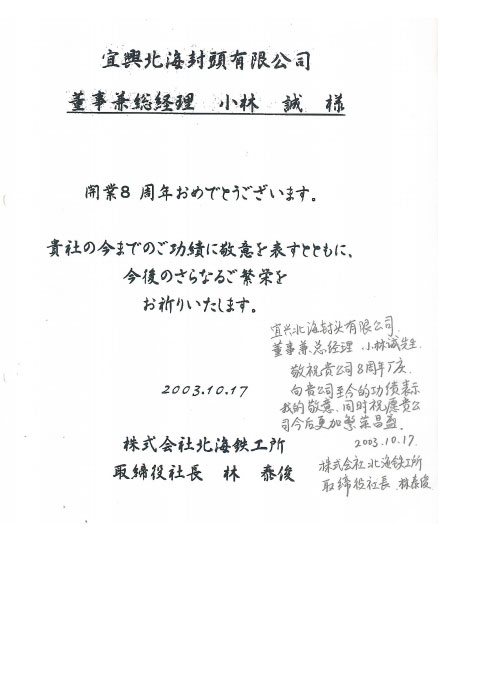 宜興北海封頭有限公司
董事兼総経理 小林 誠 様
開業8周年おめでとうございます。
貴社の今までのご功績に敬意を表すとともに、
今後のさらなるご繁栄を
お祈りいたします。
2003.10.17
株式会社北海鉄工所
取締役社長 林 泰俊
宜兴北海封头有限公司.
董事兼总经理 小林诚先生.
敬祝贵公司8周年厂庆.
向贵公司至今的功绩表示
我的敬意.同时祝愿贵公
司今后更加繁荣昌盛.
2003.10.17.
株式会社北海鉄工所
取締役社長 林泰俊